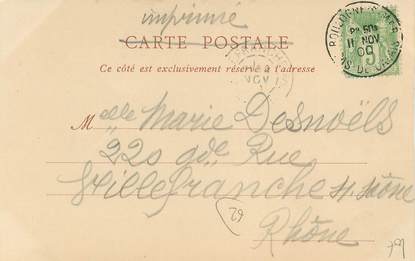 imprimé
CARTE POSTALE
Ce côté est exclusivement réservé à l'adresse
BOULOGNE-S-MER
11 NOV
00
PAS-DE-CALAIS
5
Melle Marie Desnoëls
220 gde Rue
Villefranche s. Saône
Rhône
29